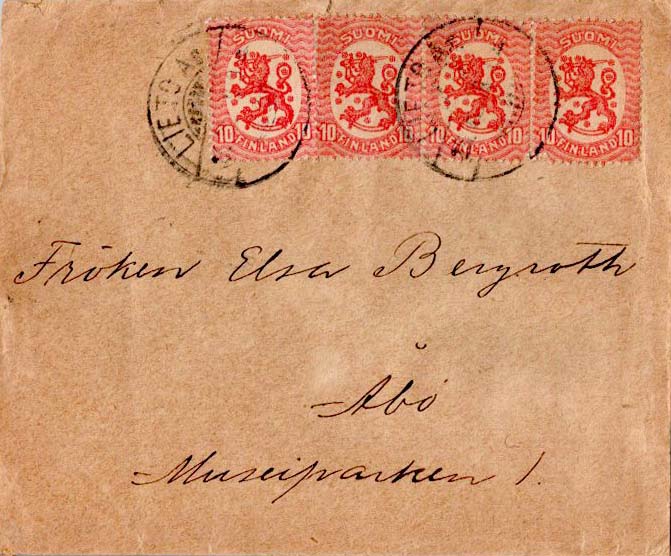 SUOMI SUOMI SUOMI SUOMI
10 10 10 10 10 10 10 10
FINLAND FINLAND FINLAND FINLAND
LIETO AS
LIETO AS
Fröken Elsa Bergroth
Åbo
Museiparken 1.